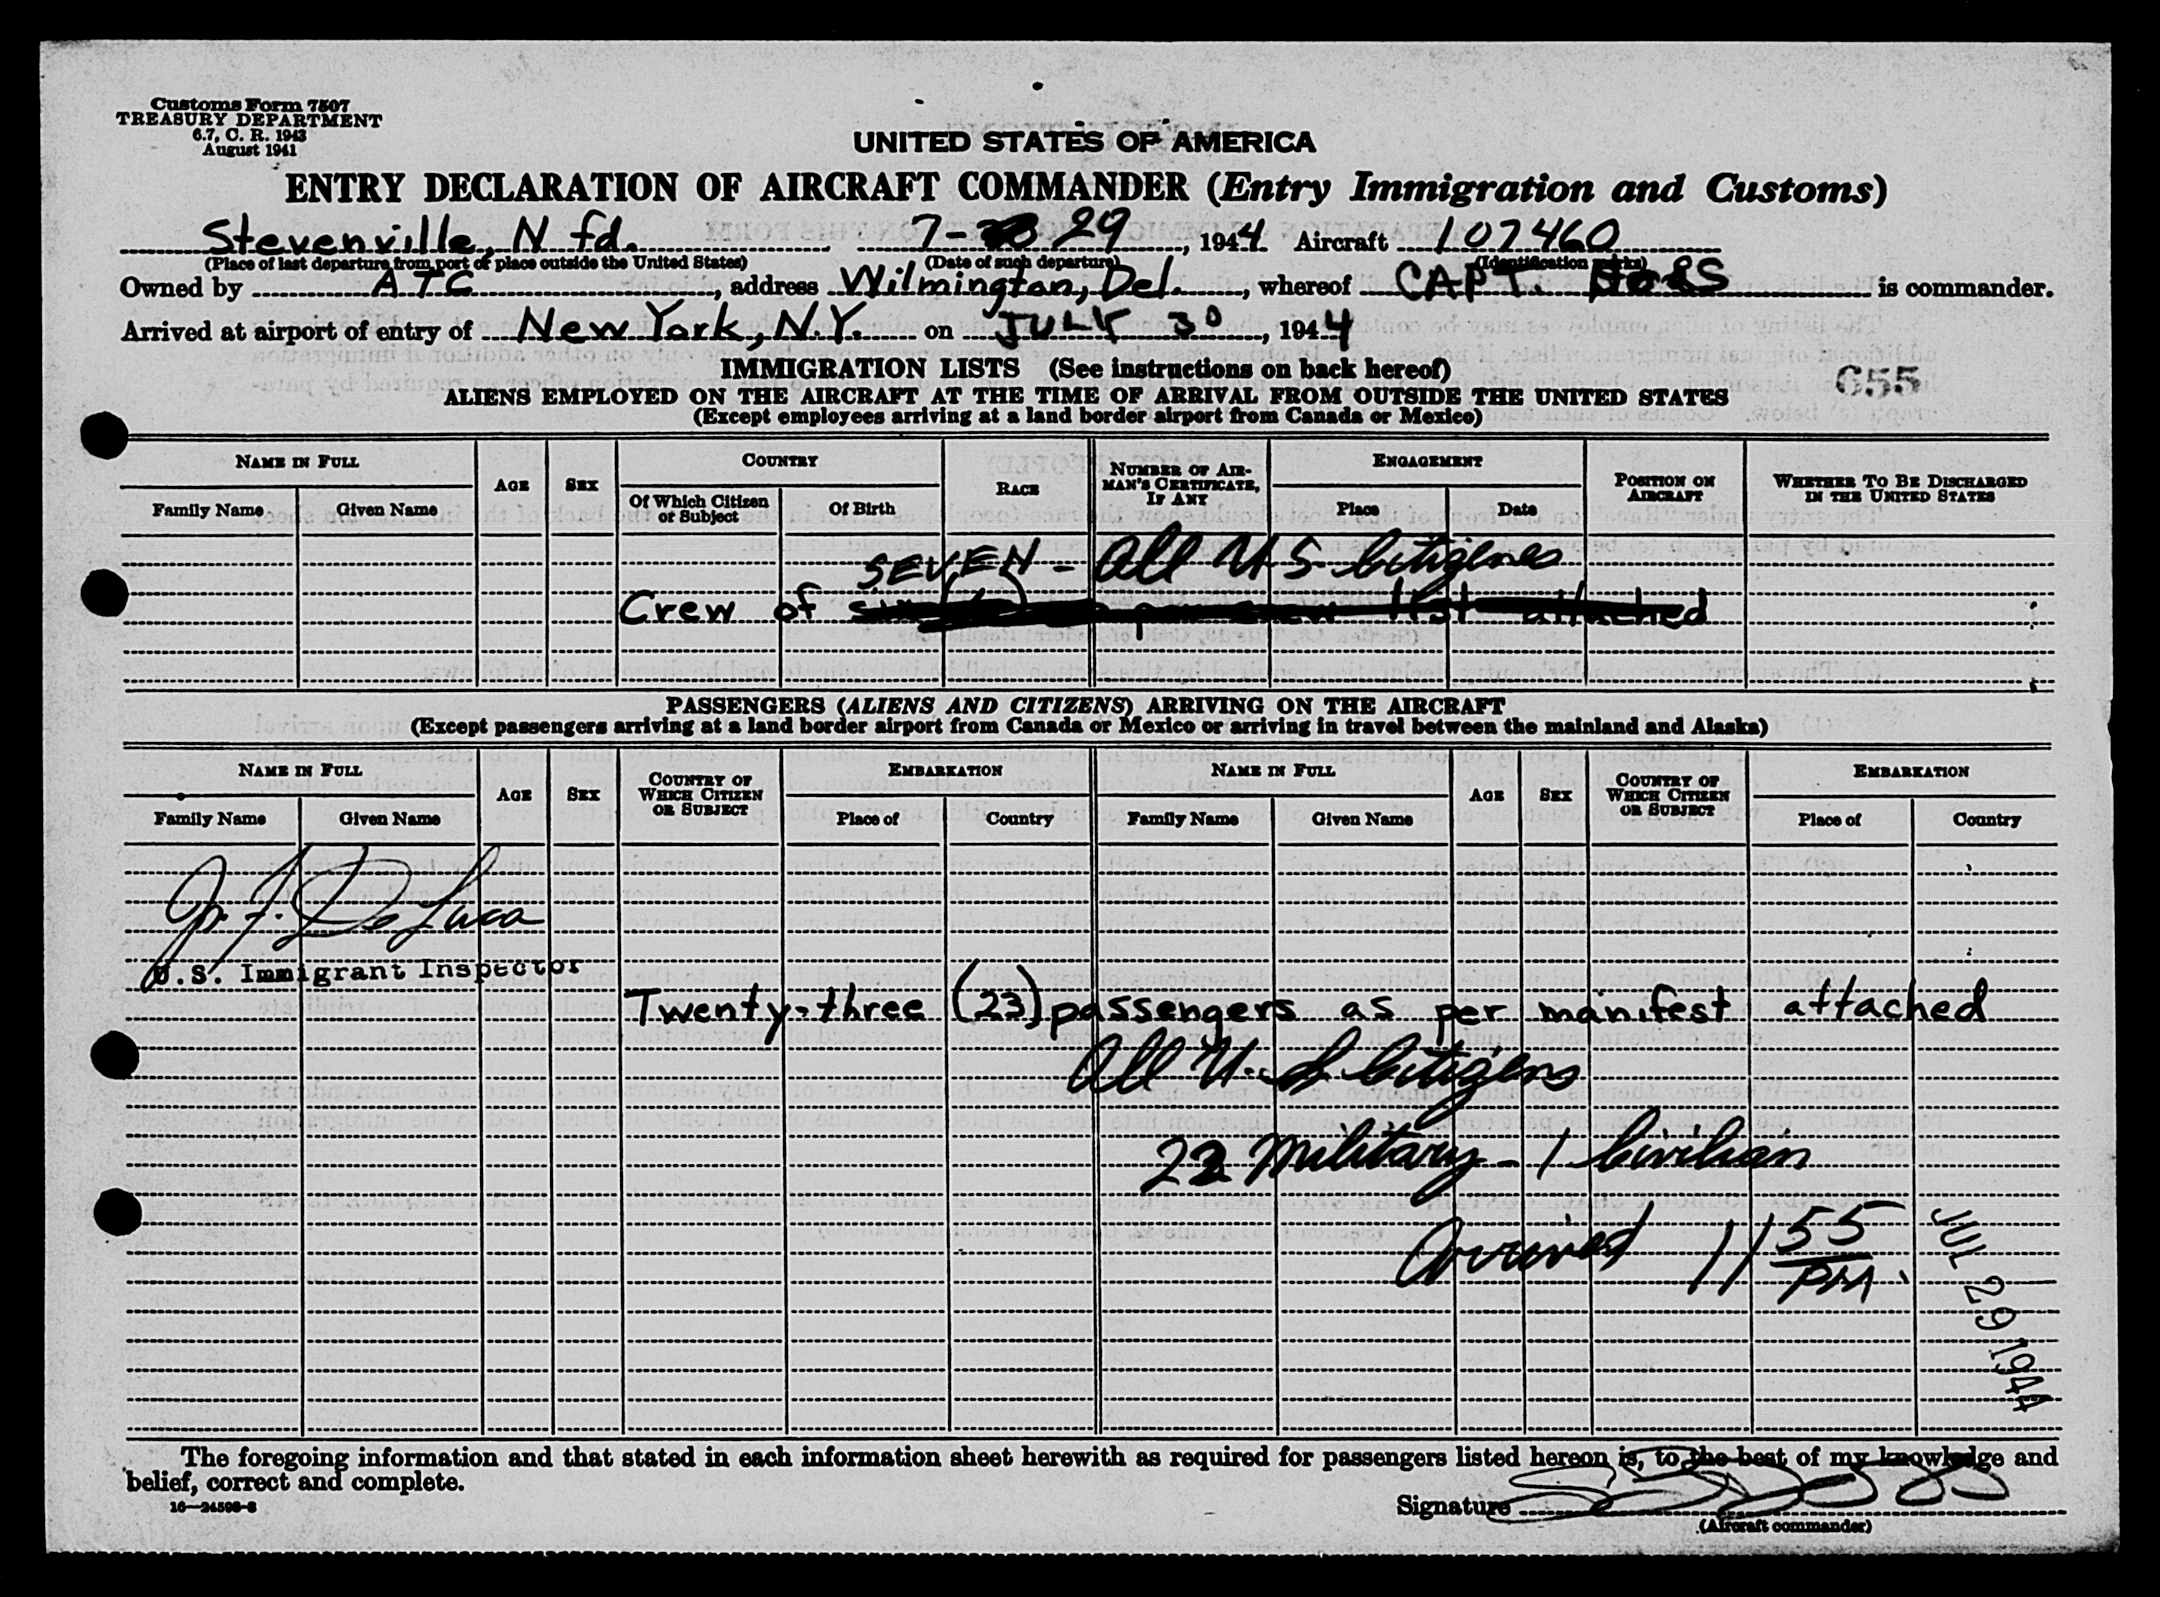 Customs Form 7507
TREASURY DEPARTMENT
6.7, C. R. 1943
August 1941
UNITED STATES OF AMERICA
ENTRY DECLARATION OF AIRCRAFT COMMANDER (Entry Immigration and Customs)
Stevenville, Nfd. 7- 29, 1944 Aircraft 107460
(Place of last departure from port or place outside the United States) (Date of such departure) (Identification marks)
Owned by ATC, address Wilmington, Del., whereof CAPT. is commander.
Arrived at airport of entry of New York, N.Y. on JULY 30, 1944
IMMIGRATION LISTS (See instructions on back hereof)
655
ALIENS EMPLOYED ON THE AIRCRAFT AT THE TIME OF ARRIVAL FROM OUTSIDE THE UNITED STATES
(Except employees arriving at a land border airport from Canada or Mexico)
NAME IN FULL AGE SEX COUNTRY RACE NUMBER OF AIRMAN'S CERTIFICATE, IF ANY ENGAGEMENT POSITION ON AIRCRAFT WHETHER TO BE DISCHARGED IN THE UNITED STATES
Family Name Given Name Of Which Citizen or Subject Of Birth Place Date
SEVEN - All U S Citizens
Crew of list attached
PASSENGERS (ALIENS AND CITIZENS) ARRIVING ON THE AIRCRAFT
(Except passengers arriving at a land border airport from Canada or Mexico or arriving in travel between the mainland and Alaska)
NAME IN FULL AGE SEX COUNTRY OF WHICH CITIZEN OR SUBJECT EMBARKATION NAME IN FULL AGE SEX COUNTRY OF WHICH CITIZEN OR SUBJECT EMBARKATION
Family Name Given Name Place of Country Family Name Given Name Place of Country
J. De Luca
U.S. Immigrant Inspector
Twenty-three (23) passengers as per manifest attached
All U.S. Citizens
22 Military - 1 Civilian
Arrived 11 55 PM.
JUL 29 1944
The foregoing information and that stated in each information sheet herewith as required for passengers listed hereon is, to the best of my knowledge and
belief, correct and complete.
16—24598-3
Signature
(Aircraft commander)